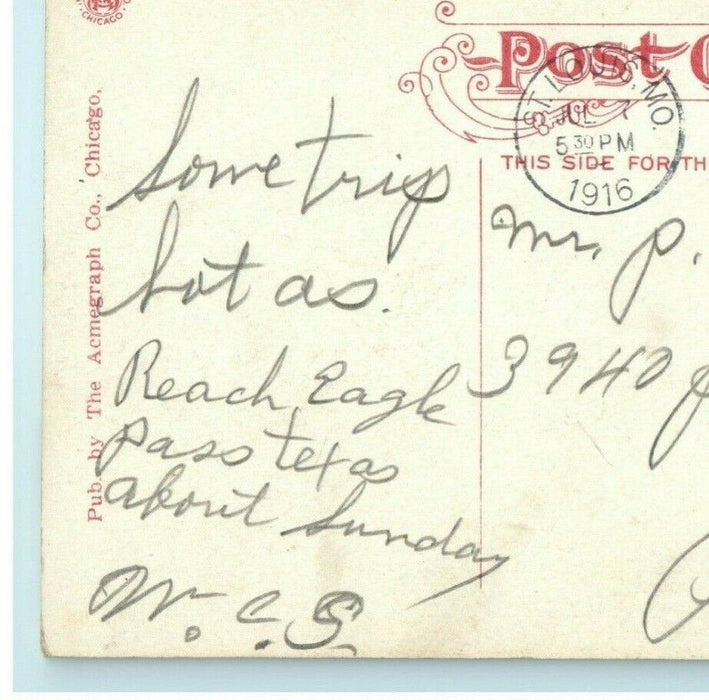 CHICAGO
POST C
ST. LOUIS, MO.
JUL 7
5 30 PM
1916
THIS SIDE FOR TH
Pub. by The Acmegraph Co., Chicago.
Some trip
hot as.
Reach Eagle
Pass Texas
about Sunday
W. C. S.
Mr. P.
3940